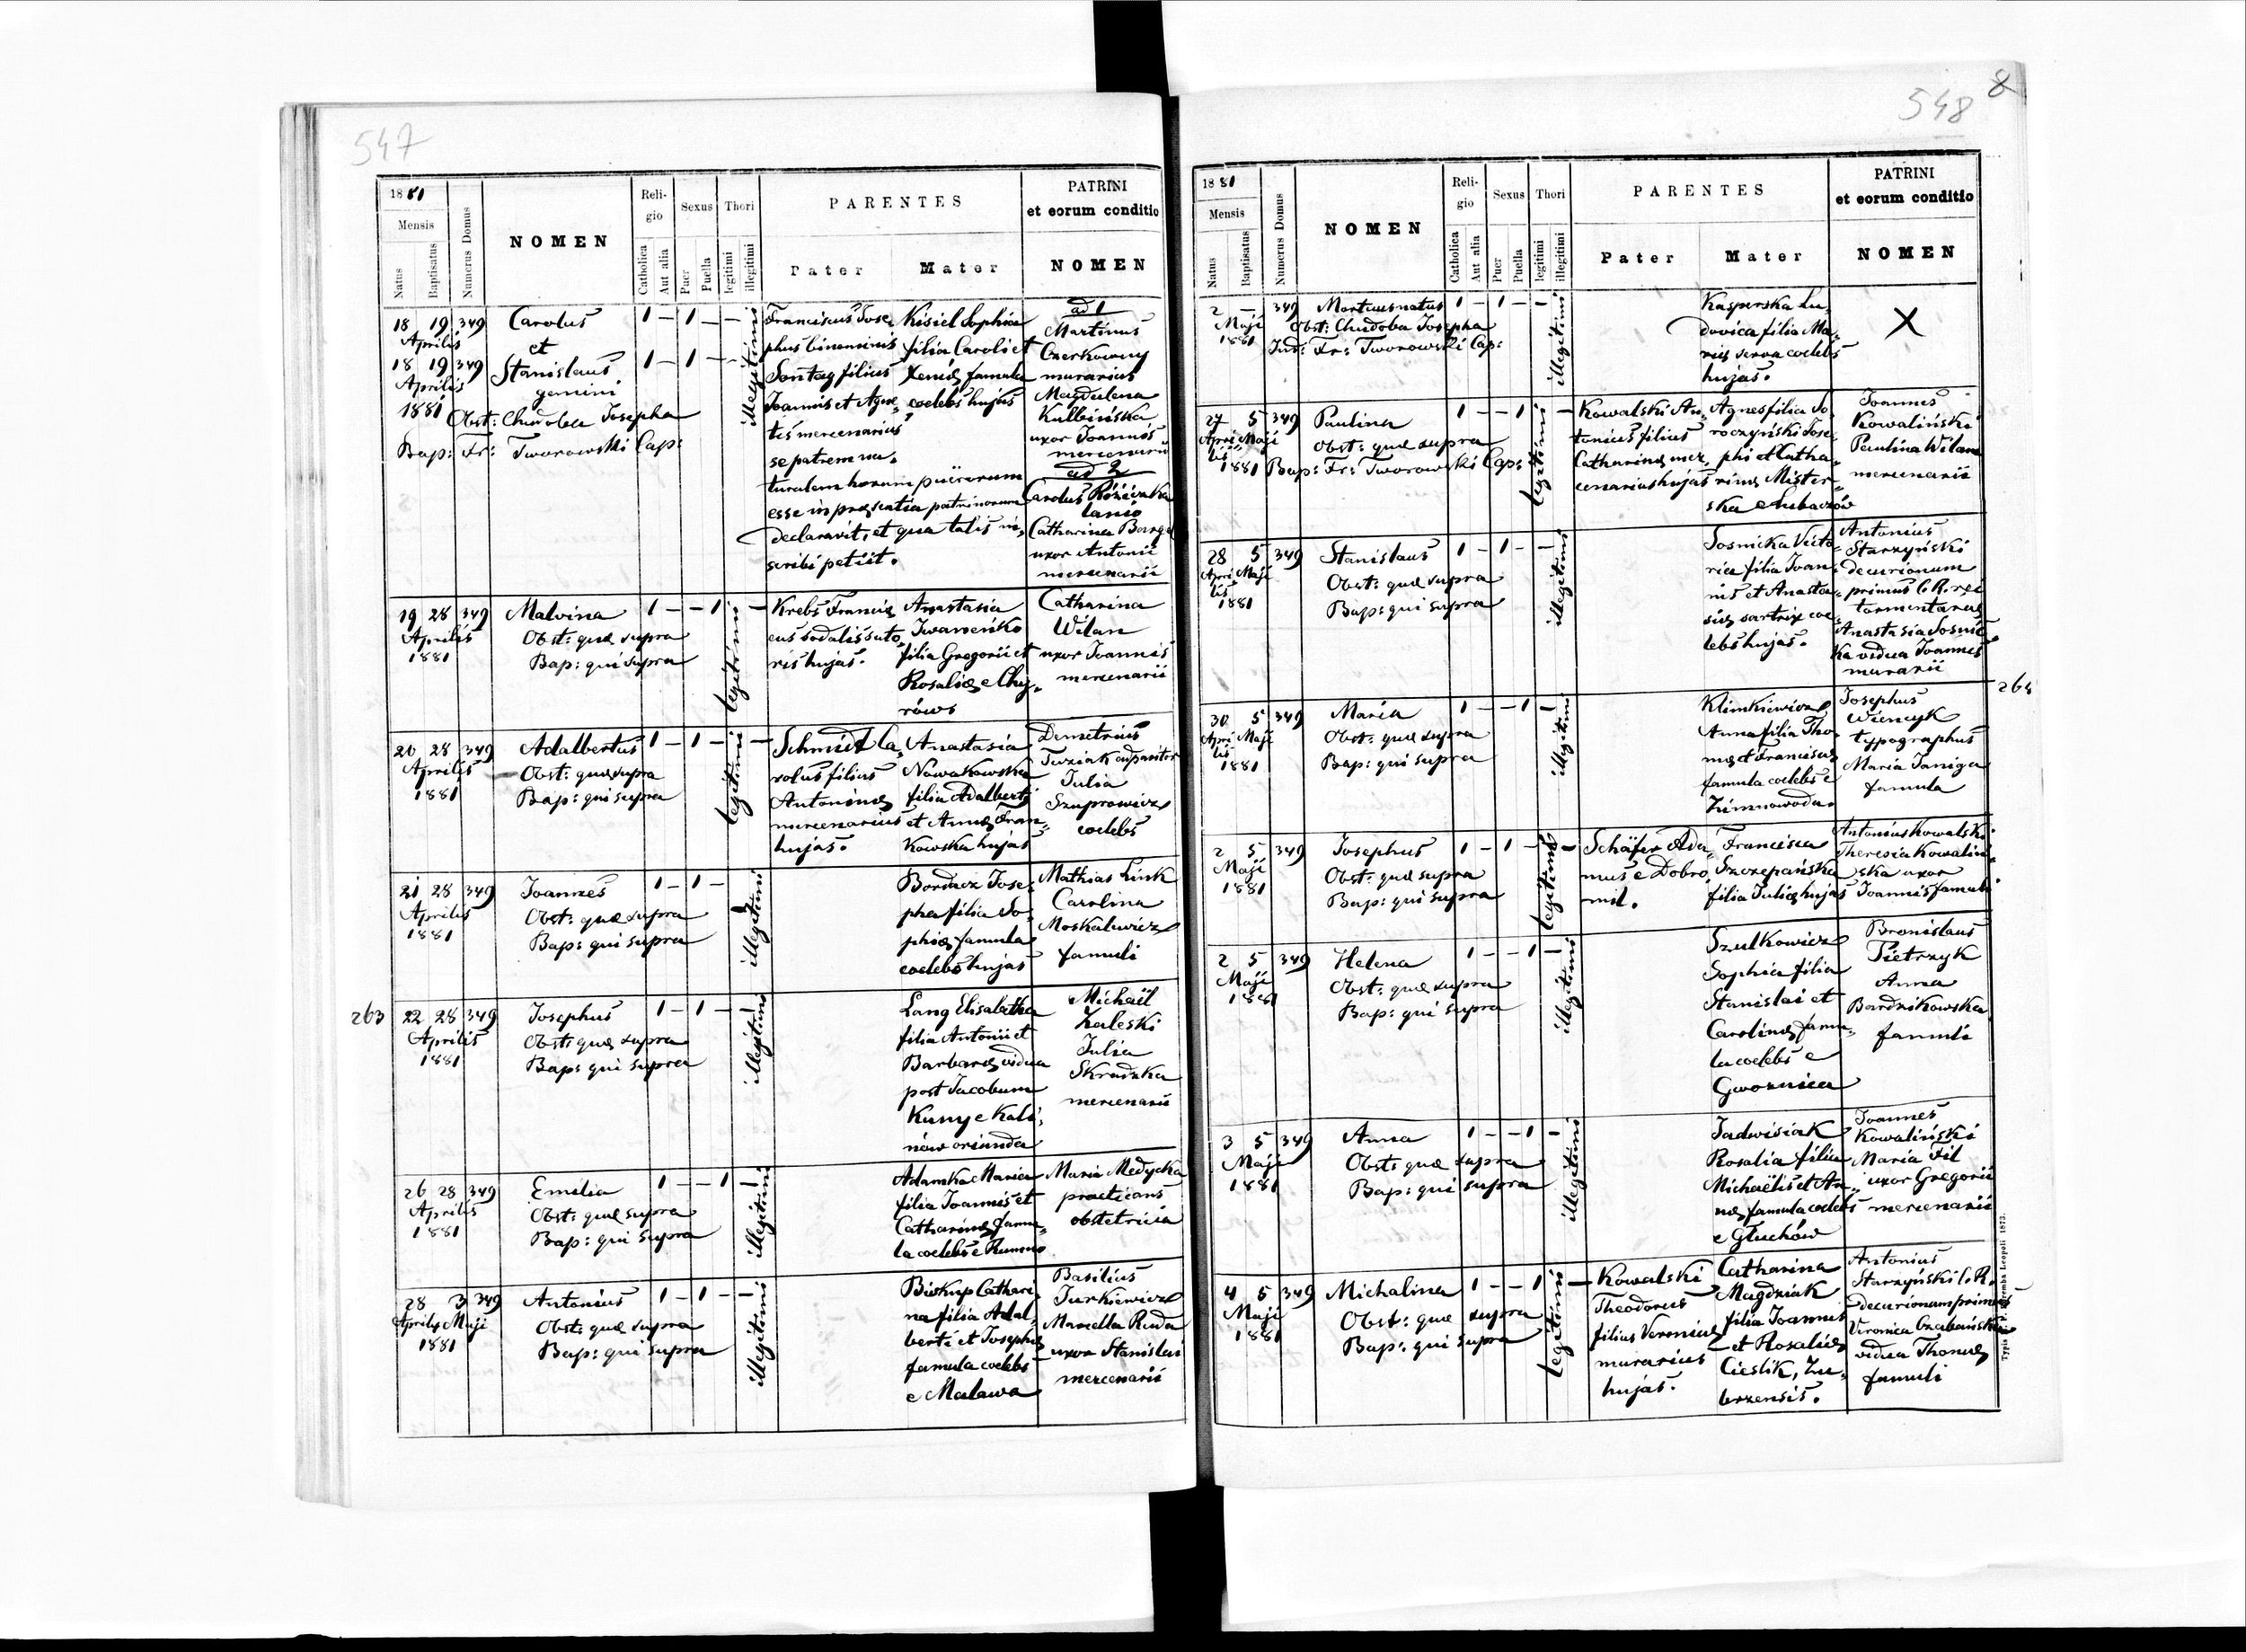 547
1881
Mensis
Natus
Baptisatus
Numerus Domus
NOMEN
Reli-
gio
Catholica
Aut alia
Sexus
Puer
Puella
Thori
legitimi
illegitimi
PARENTES
Pater
Mater
PATRINI
et eorum conditio
NOMEN
18 19 349
Aprilis
Carolus
et
18 19 349
Aprilis
1881
Stanislaus
gemini
Obst: Chudoba Josepha
Bap: Fr: Tworowski Cap:
1 – 1 – –
1 – 1 – –
illegitimi
Franciscus Jose
phus binominis
Sontag filius
Joannis et Agne
tis mercenarius
se patrem na
turalem horum puerorum
esse in praesentia patrinorum
declaravit, et qua talis in
scribi petiit.
Kisiel Sophia
filia Caroli et
Xeniae famula
coelebs hujas
ad 1
Martinus
Czerkowny
murarius
Magdalena
Kulbińska
uxor Joannis
mercenarii
ad 2
Carolus Różiczka
lanio
Catharina Barga
uxor Antonii
mercenarii
19 28 349
Aprilis
1881
Malvina
Obst: quae supra
Bap: qui supra
1 – – 1 –
legitimi
Krebs Francis
cus sodalis suto
ris hujas.
Anastasia
Iwaneńko
filia Gregorii et
Rosaliae e Chy
rów
Catharina
Wilan
uxor Joannis
mercenarii
20 28 349
Aprilis
1881
Adalbertus
Obst: quae supra
Bap: qui supra
1 – 1 – –
legitimi
Schmidt Ca
rolus filius
Antoninae
mercenarius
hujas.
Anastasia
Nowakowska
filia Adalberti
et Annae Fran
kowska hujas
Demetrius
Julia
Szuprowicz
coelebs
21 28 349
Aprilis
1881
Joannes
Obst: quae supra
Bap: qui supra
1 – 1 –
illegitimi
Bordacz Jose
pha filia So
phiae famula
coelebs hujas
Mathias Link
Carolina
Moskalewicz
famuli
263
22 28 349
Aprilis
1881
Josephus
Obst: quae supra
Bap: qui supra
1 – 1 – 1
illegitimi
Lang Elisabetha
filia Antonii et
Barbarae vidua
post Jacobum
Kuny e Kali
nów oriunda
Michaël
Zaleski
Julia
Skradzka
mercenarii
26 28 349
Aprilis
1881
Emilia
Obst: quae supra
Bap: qui supra
1 – – 1 1
illegitimi
Adamka Maria
filia Joannis et
Catharinae famu
la coelebs e Rumno
Maria Medycka
practicans
obstetricia
28 3 349
Aprilis Maji
1881
Antonius
Obst: quae supra
Bap: qui supra
1 – 1 – 1
illegitimi
Biskup Cathari
na filia Adal
berti et Josephae
famula coelebs
e Malawa
Basilius
Turkiewicz
Marcella Ruda
uxor Stanislai
mercenarii
548
8
1881
Mensis
Natus
Baptisatus
Numerus Domus
NOMEN
Reli-
gio
Catholica
Aut alia
Sexus
Puer
Puella
Thori
legitimi
illegitimi
PARENTES
Pater
Mater
PATRINI
et eorum conditio
NOMEN
2 – 349
Maji
1881
Mortuusnatus
Obst: Chudoba Josepha
Ind: Fr: Tworowski Cap:
1 – 1 – 1
illegitimi
Kasperska Lu
dovica filia Ma
riae serva coelebs
hujas.
X
27 5 349
Apri Maji
lis
1881
Paulina
Obst: quae supra
Bap: Fr: Tworowski Cap:
1 – – 1 –
legitimi
Kowalski An
tonius filius
Catharinae mer
cenarius hujas
Agnes filia So
roczyński Jose
phi et Catha
rinae Mister
ska e Lubaczów
Joannes
Kowaliński
Paulina Wilan
mercenarii
28 5 349
Apri Maji
lis
1881
Stanislaus
Obst: quae supra
Bap: qui supra
1 – 1 – 1
illegitimi
Sosnicka Victo
ria filia Joan
nis et Anasta
siae sartrix coe
lebs hujas.
Antonius
Starzyński
decurionum
primus C. R. rei
tormentarae
Anastasia Sosnic
ka vidua Joannis
murarii
264
30 5 349
Apri Maji
lis
1881
Maria
Obst: quae supra
Bap: qui supra
1 – – 1 1
illegitimi
Klimkiewicz
Anna filia Tho
mae et Franciscae
famula coelebs e
Zimnowoda.
Josephus
Wienczyk
typographus
Maria Janiga
famula
2 5 349
Maji
1881
Josephus
Obst: quae supra
Bap: qui supra
1 – 1 – –
legitimi
Schäfer Ada
mus e Dobro
mil.
Francisca
Szczepańska
filia Juliae hujas
Antonius Kowalski
Theresia Kowaliń
ska uxor
Joannis famuli
2 5 349
Maji
1881
Helena
Obst: quae supra
Bap: qui supra
1 – – 1 1
illegitimi
Szulkowicz
Sophia filia
Stanislai et
Carolinae famu
la coelebs e
Gwoznica
Bronislaus
Pietrzyk
Anna
Bardzikowska
famuli
3 5 349
Maji
1881
Anna
Obst: quae supra
Bap: qui supra
1 – – 1 1
illegitimi
Jadwisiak
Rosalia filia
Michaëlis et An
nae famula coelebs
e Głuchów
Joannes
Kowaliński
Maria Fil
uxor Gregorii
mercenarii
4 5 349
Maji
1881
Michalina
Obst: quae supra
Bap: qui supra
1 – – 1 –
legitimi
Kowalski
Theodorus
filius Veronicae
murarius
hujas.
Catharina
Magdziak
filia Joannis
et Rosaliae
Cieslik, Zu
brzensis.
Antonius
Starzyński C. R.
Decurionum primus
Veronica Czabańska
vidua Thomae
famuli
Leopoli 1873.